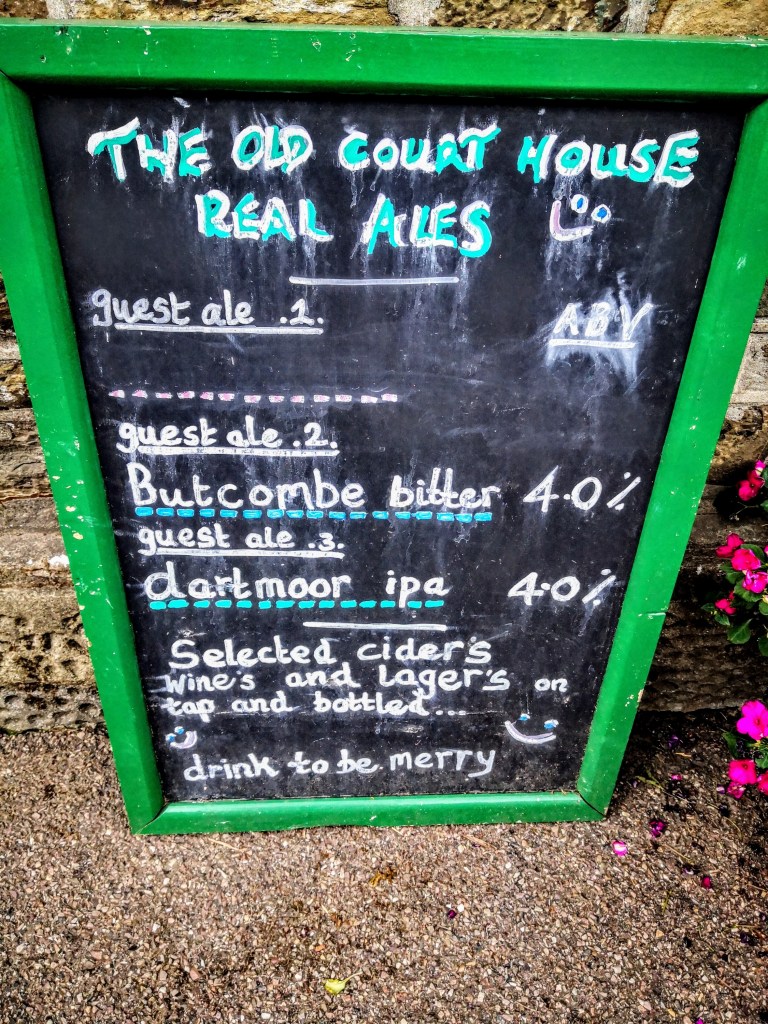 THE OLD COURT HOUSE
REAL ALES
guest ale .1.
ABV
guest ale .2.
Butcombe bitter 4.0%
guest ale .3.
dartmoor ipa 4.0%
Selected cider's
wine's and lager's on
tap and bottled...
drink to be merry